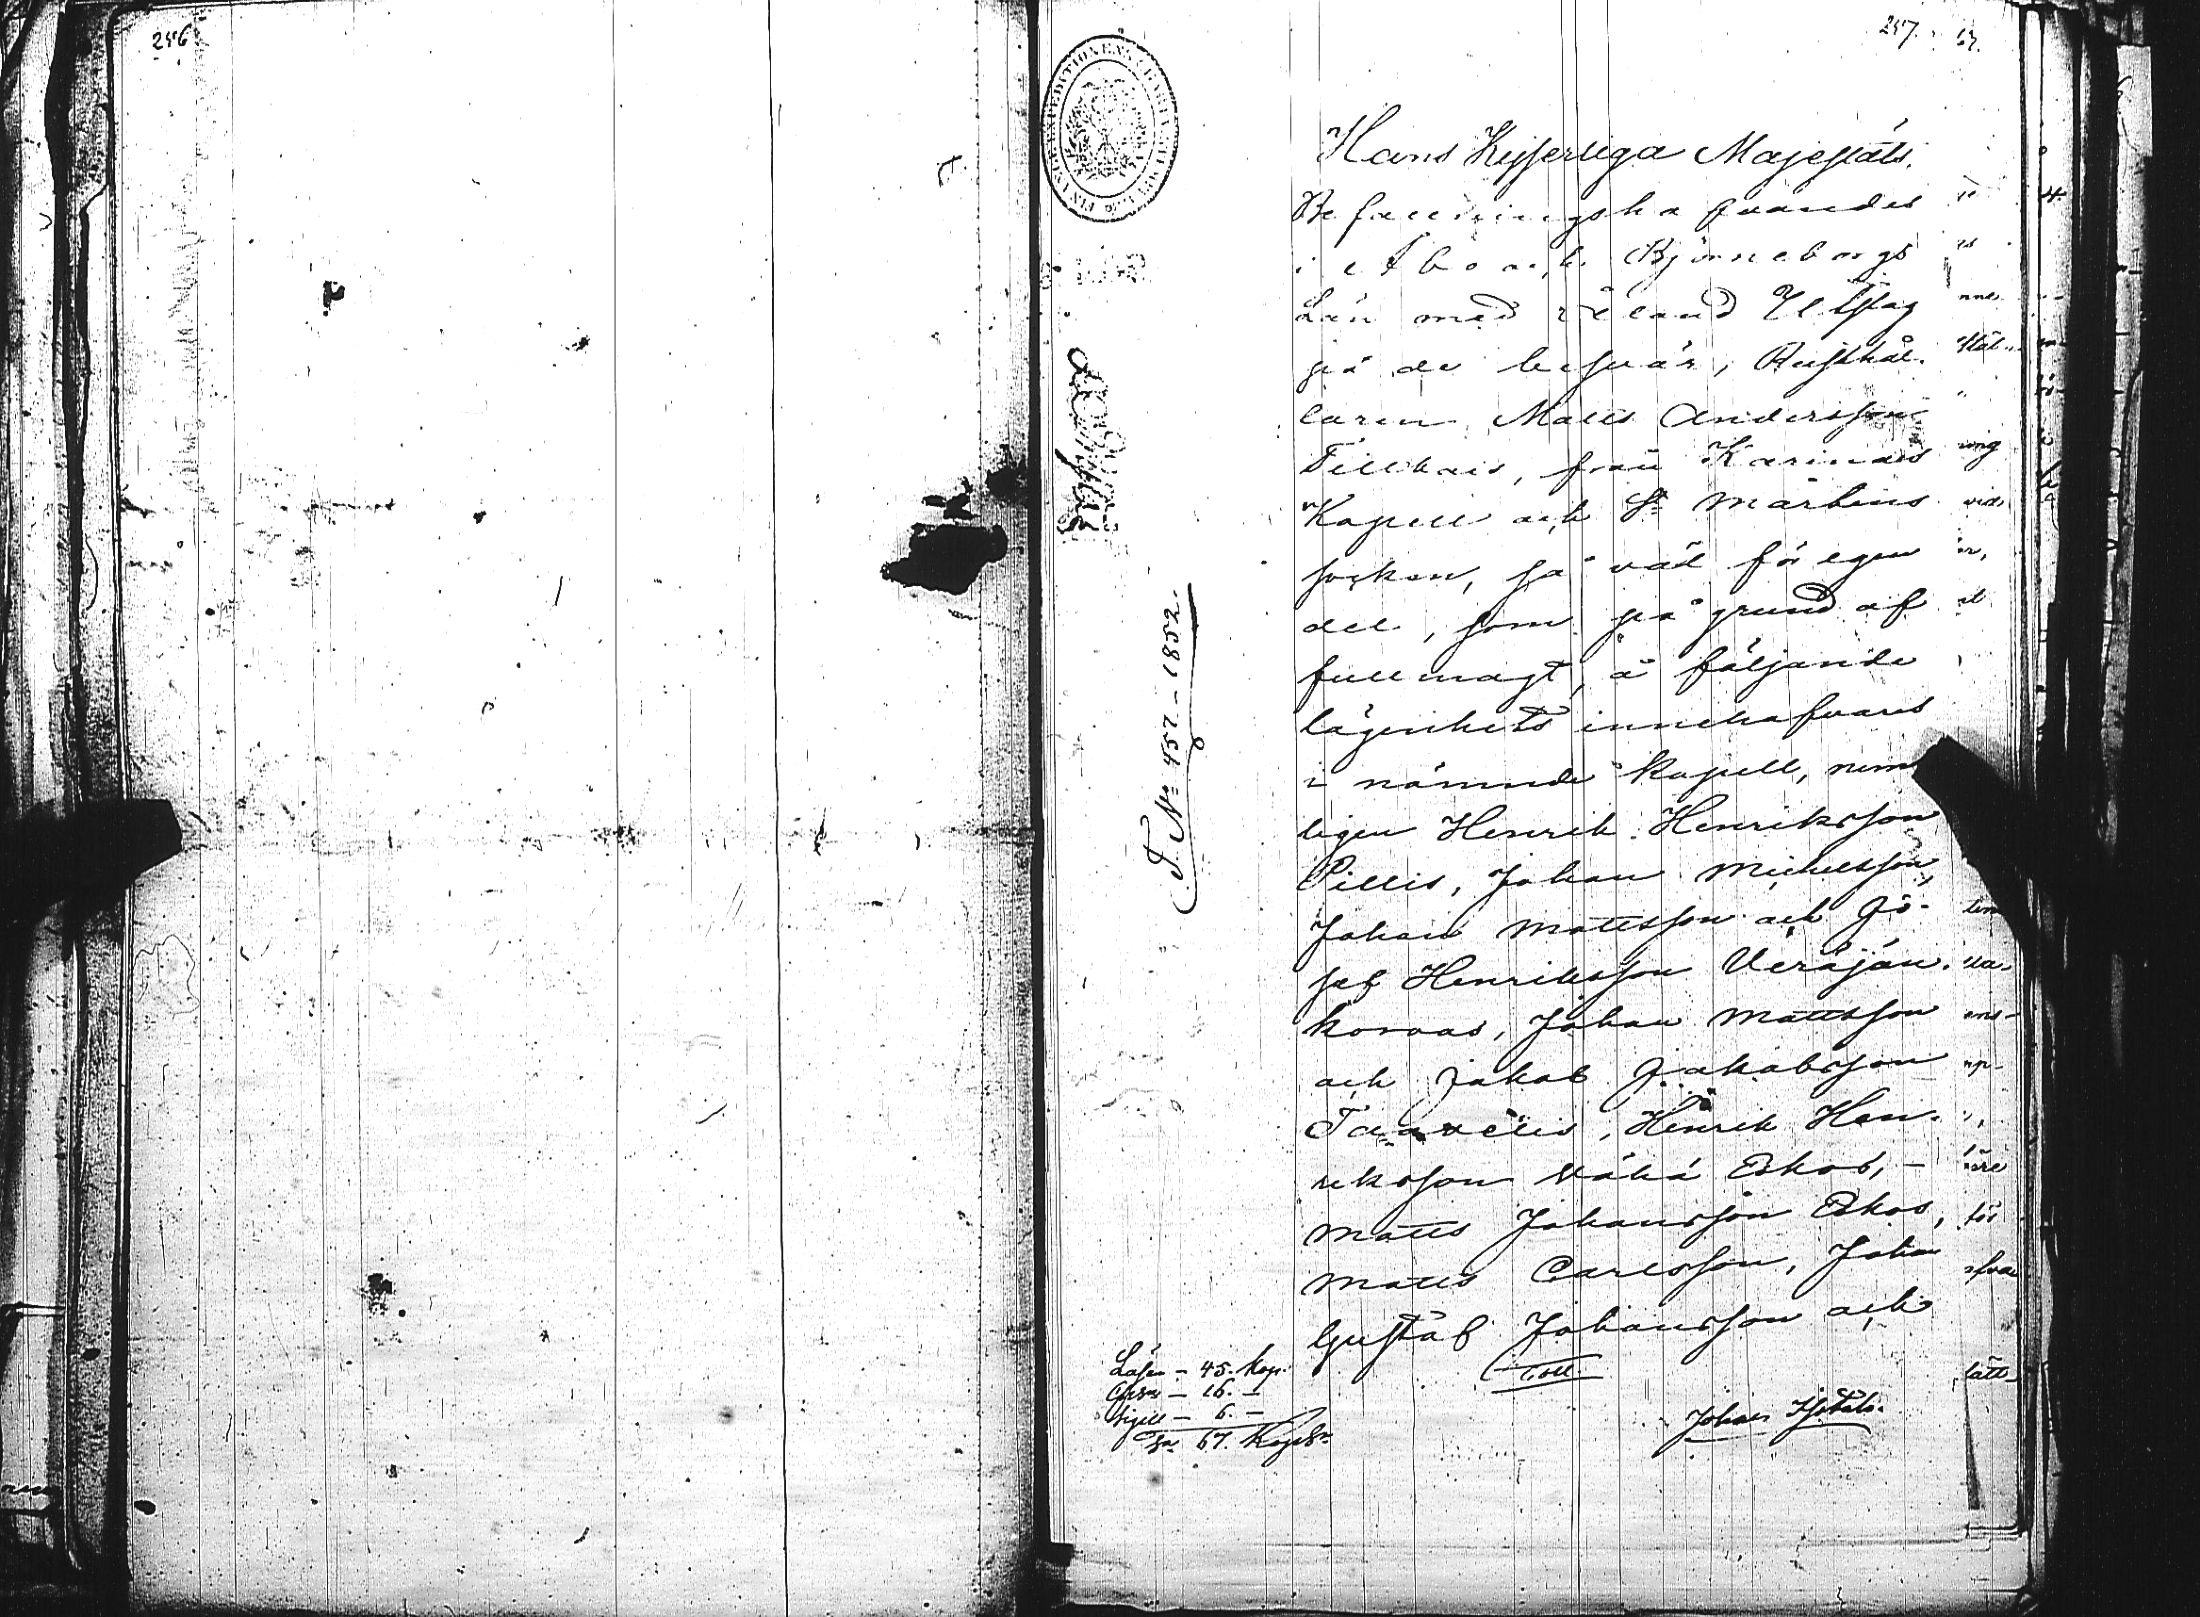 256
257.
63.
Hans Kejserliga Majestäts
Befallningshafvandes
i Åbo och Björneborgs
Län med Åland Utslag
på de besvär, Rusthål-
laren Matts Andersson
Tillkais, från Karinais
Kapell och St Mårtens
socken, så väl för egen
del, som på grund af
fullmagt, å följande
lägenhets innehafvares
i nämnde Kapell, nem-
ligen Henrik Henriksson
Pillis, Johan Michelsson,
Johan Mattsson och Jo-
sef Henriksson Veräjän-
korvas, Johan Mattsson
och Jakob Jakobsson
Taavelis, Henrik Hen-
riksson Vähä Eskos, -
Matts Johansson Eskos,
Matts Carlsson, Johan
Gustaf Johansson och
Lösen - 45. Kop.
- 16. -
Sigill - 6. -
Sa 67. Kop Sr
Johan
T. No 457 - 1852.